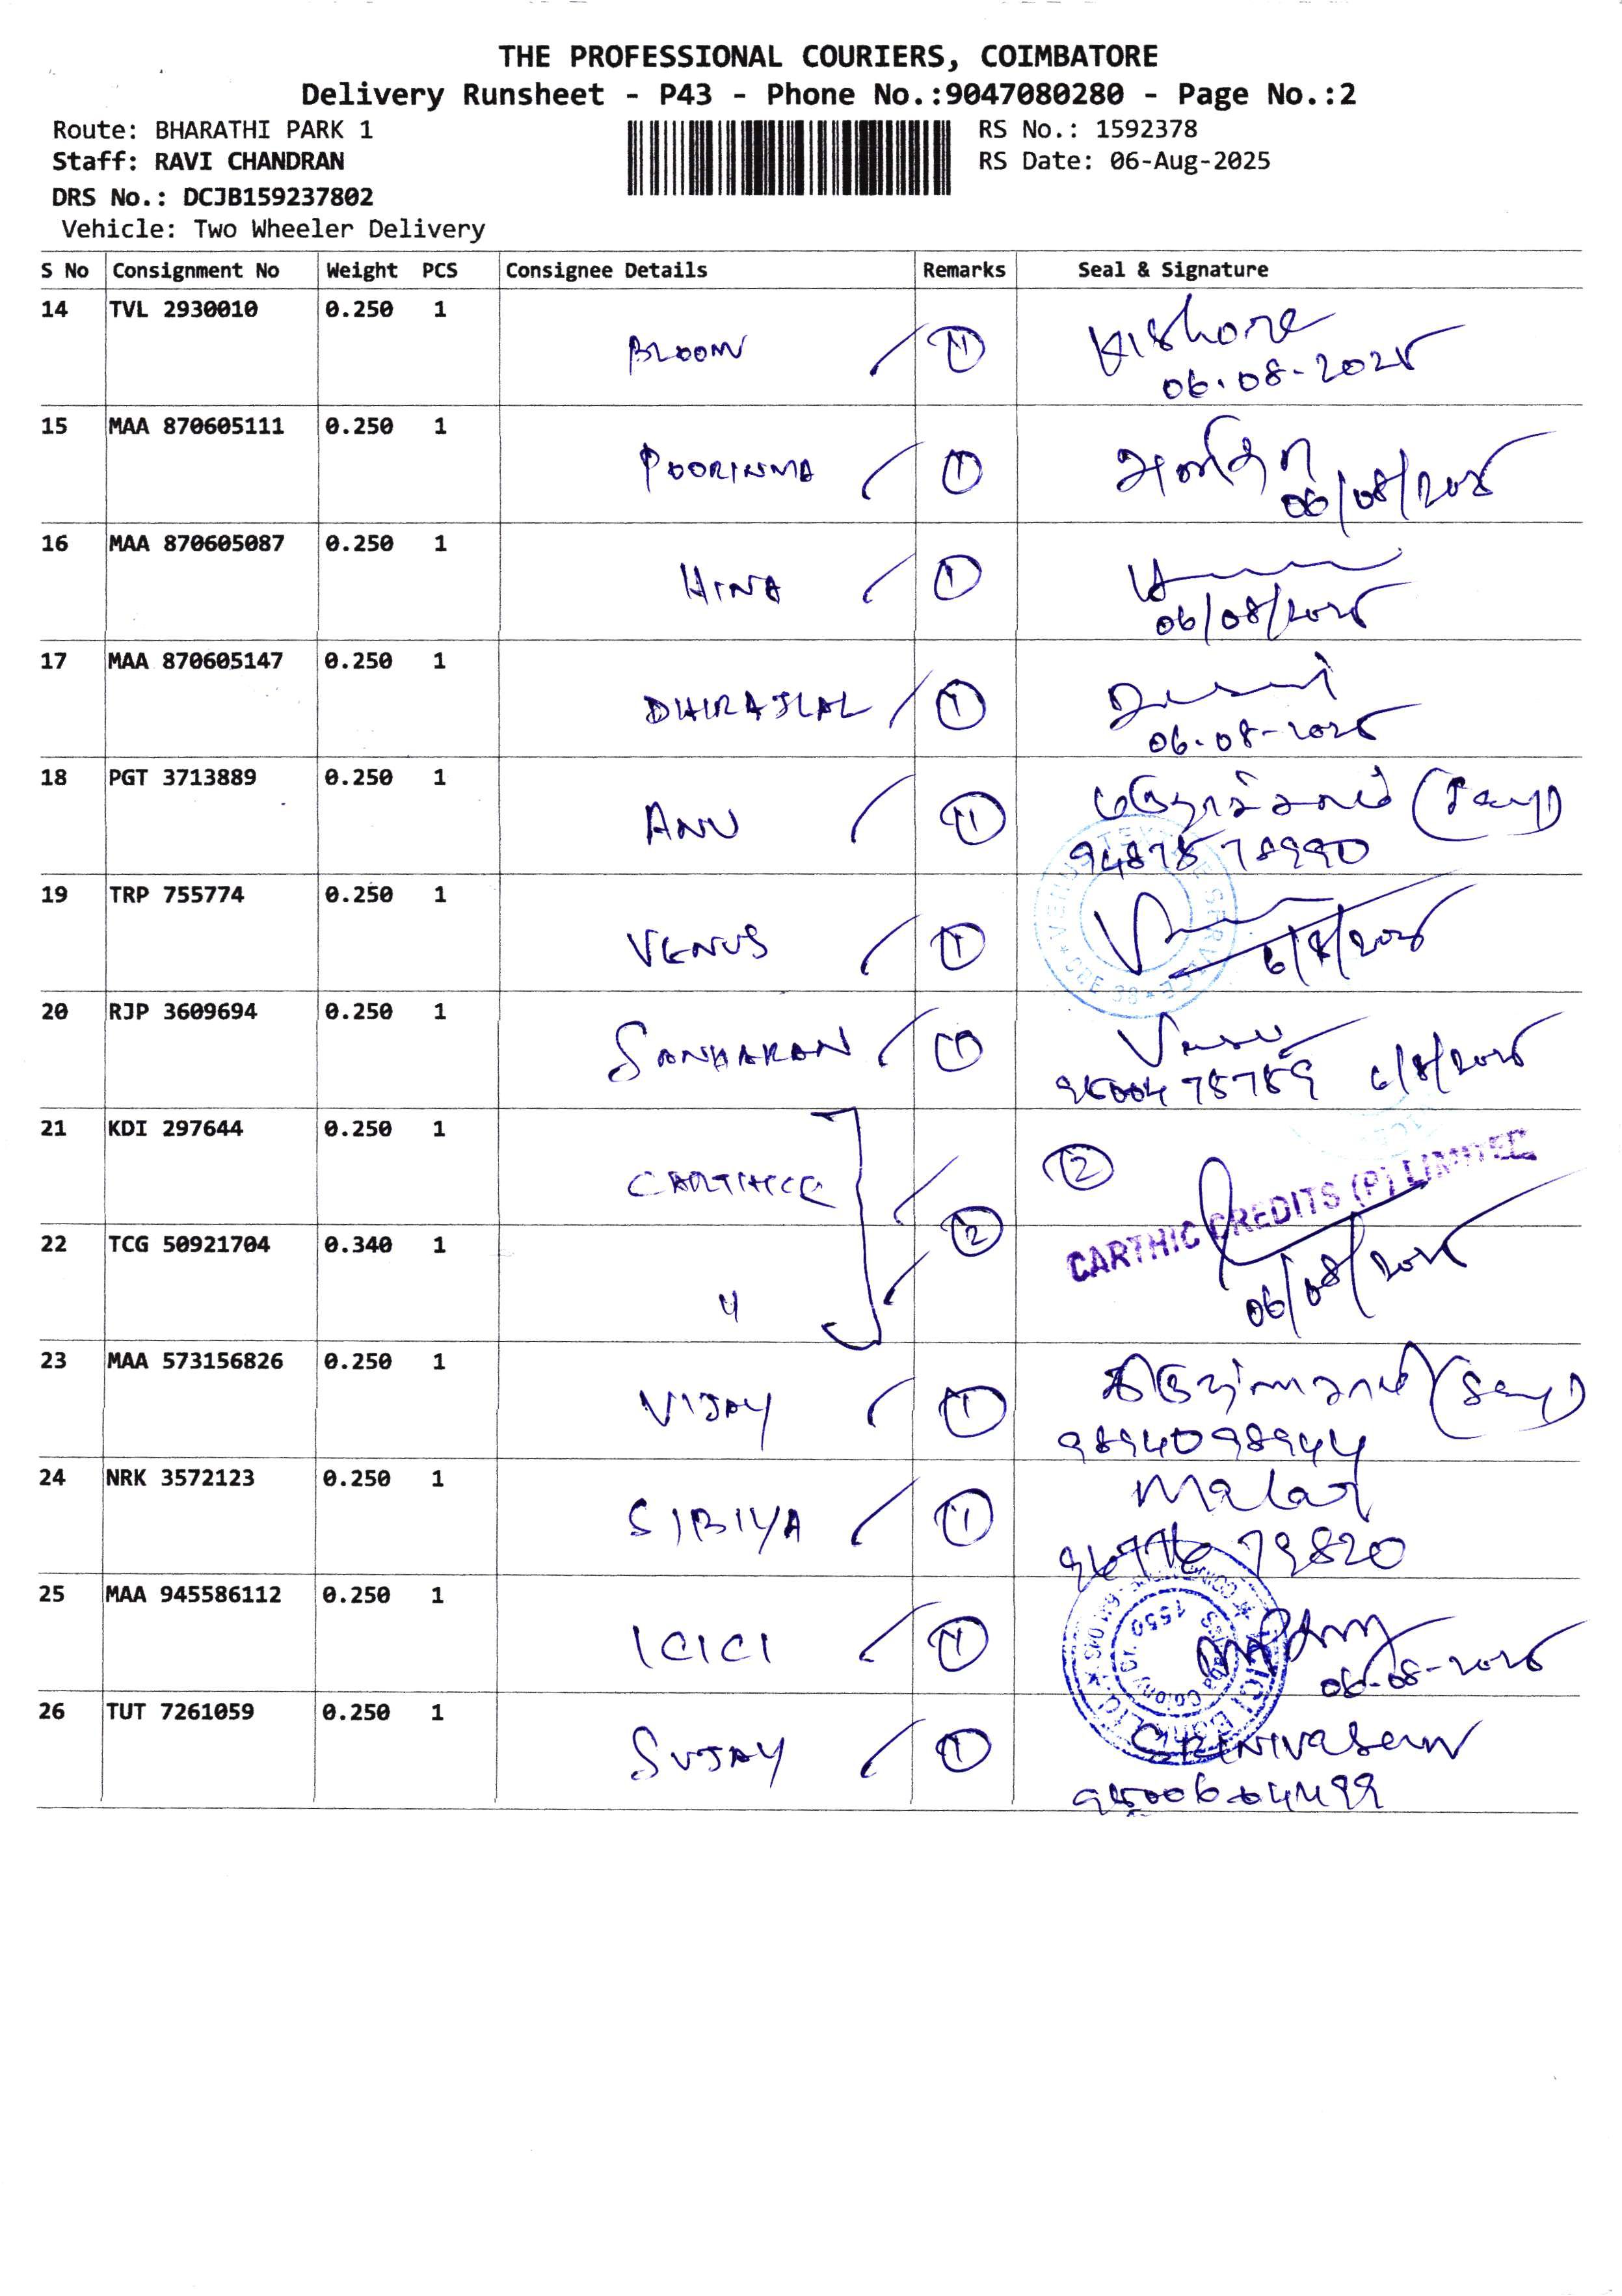 THE PROFESSIONAL COURIERS, COIMBATORE
Delivery Runsheet - P43 - Phone No.:9047080280 - Page No.:2
Route: BHARATHI PARK 1
RS No.: 1592378
Staff: RAVI CHANDRAN
RS Date: 06-Aug-2025
DRS No.: DCJB159237802
Vehicle: Two Wheeler Delivery
S No Consignment No Weight PCS Consignee Details Remarks Seal & Signature
14 TVL 2930010 0.250 1
BLOOM 1 Kishore
06.08-2025
15 MAA 870605111 0.250 1
POORINMA 1
06/08/2025
16 MAA 870605087 0.250 1
HINA 1
06/08/2025
17 MAA 870605147 0.250 1
DHIRAJLAL 1
06-08-2025
18 PGT 3713889 0.250 1
ANU 1
19 TRP 755774 0.250 1
VENUS 1
6/8/2025
20 RJP 3609694 0.250 1
SANKARAN 1 Vasu
9500475789 6/8/2025
21 KDI 297644 0.250 1
CARTHICC 2
2
CARTHIC CREDITS (P) LIMITED
22 TCG 50921704 0.340 1
06/08/2025
23 MAA 573156826 0.250 1
VIJAY 1
9894098944
24 NRK 3572123 0.250 1
SIBIYA 1 Malar
9677679820
25 MAA 945586112 0.250 1
ICICI 1
06-08-2025
26 TUT 7261059 0.250 1
SUJAY 1 Srinivasan